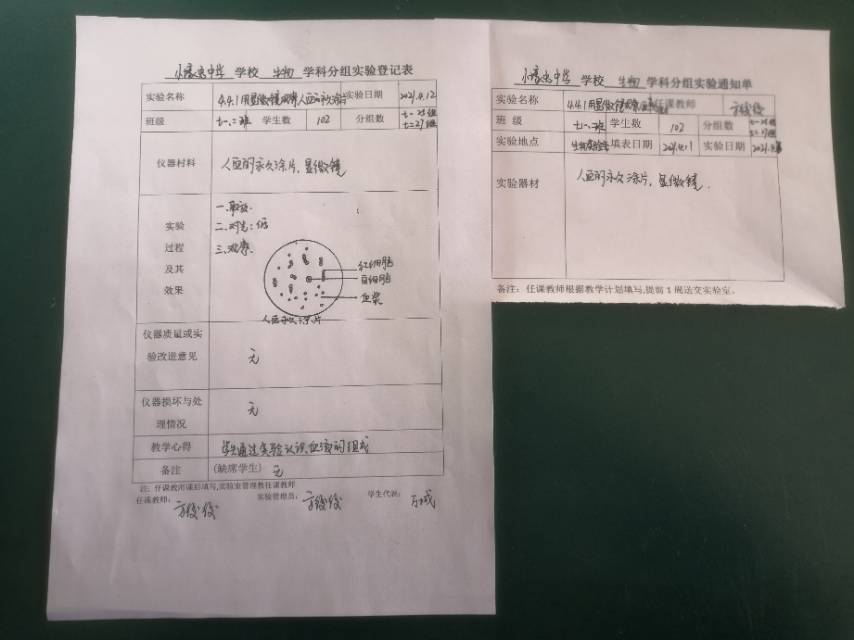 学校 生物 学科分组实验登记表
实验名称 4.4.1用显微镜观察人血的永久涂片 实验日期 2021.4.12
班级 七一、二班 学生数 102 分组数 七一25组
七二27组
仪器材料 人血的永久涂片,显微镜
实验
过程
及其
效果
一.取放
二.对光:低
三.观察
红细胞
白细胞
血浆
人血永久涂片
仪器质量或实
验改进意见
无
仪器损坏与处
理情况
无
教学心得 学生通过实验认识血液的组成
备注 (缺席学生) 无
注:任课教师课后填写,实验室管理教任课教师
任课教师:
实验管理员:
学生代表:
学校 生物 学科分组实验通知单
实验名称 4.4.1用显微镜 任课教师
班级 七一、二班 学生数 102 分组数 七一25组
七二27组
实验地点 生物实验室 填表日期 2021.4.1 实验日期
实验器材 人血的永久涂片,显微镜.
备注:任课教师根据教学计划填写,提前1周送交实验室。